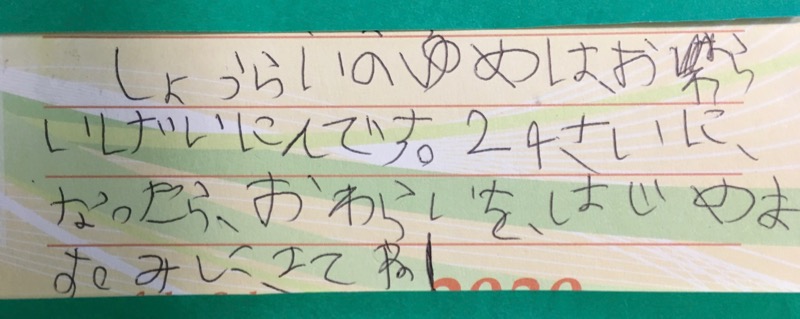 しょうらいのゆめは、おわら
いげいにんです。24さいに、
なったら、おわらいを、はじめま
すみにきてね!
2020